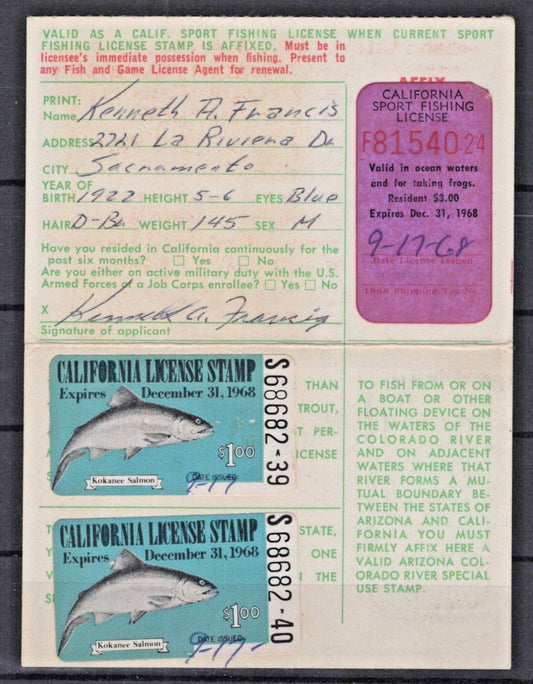 VALID AS A CALIF. SPORT FISHING LICENSE WHEN CURRENT SPORT
FISHING LICENSE STAMP IS AFFIXED. Must be in
licensee's immediate possession when fishing. Present to
any Fish and Game License Agent for renewal.
PRINT:
Name Kenneth A. Francis
ADDRESS 2721 La Riviera Dr
CITY Sacramento
YEAR OF
BIRTH 1922 HEIGHT 5-6 EYES Blue
HAIR D-Br WEIGHT 145 SEX M
Have you resided in California continuously for the
past six months? Yes No
Are you either on active military duty with the U.S.
Armed Forces or a Job Corps enrollee? Yes No
X Kenneth A. Francis
Signature of applicant
AFFIX
CALIFORNIA
SPORT FISHING
LICENSE
F81540-24
Valid in ocean waters
and for taking frogs.
Resident $3.00
Expires Dec. 31, 1968
9-17-68
Date License Issued
1968 Shipping Tag No.
CALIFORNIA LICENSE STAMP
Expires December 31, 1968
$1.00
Kokanee Salmon
DATE ISSUED
9-17
S68682-39
THAN
TROUT,
PER-
LICENSE
CALIFORNIA LICENSE STAMP
Expires December 31, 1968
$1.00
Kokanee Salmon
DATE ISSUED
9-17-
S68682-40
STATE,
ONE
THE
TO FISH FROM OR ON
A BOAT OR OTHER
FLOATING DEVICE ON
THE WATERS OF THE
COLORADO RIVER
AND ON ADJACENT
WATERS WHERE THAT
RIVER FORMS A MU-
TUAL BOUNDARY BE-
TWEEN THE STATES OF
ARIZONA AND CALI-
FORNIA YOU MUST
FIRMLY AFFIX HERE A
VALID ARIZONA COL-
ORADO RIVER SPECIAL
USE STAMP.